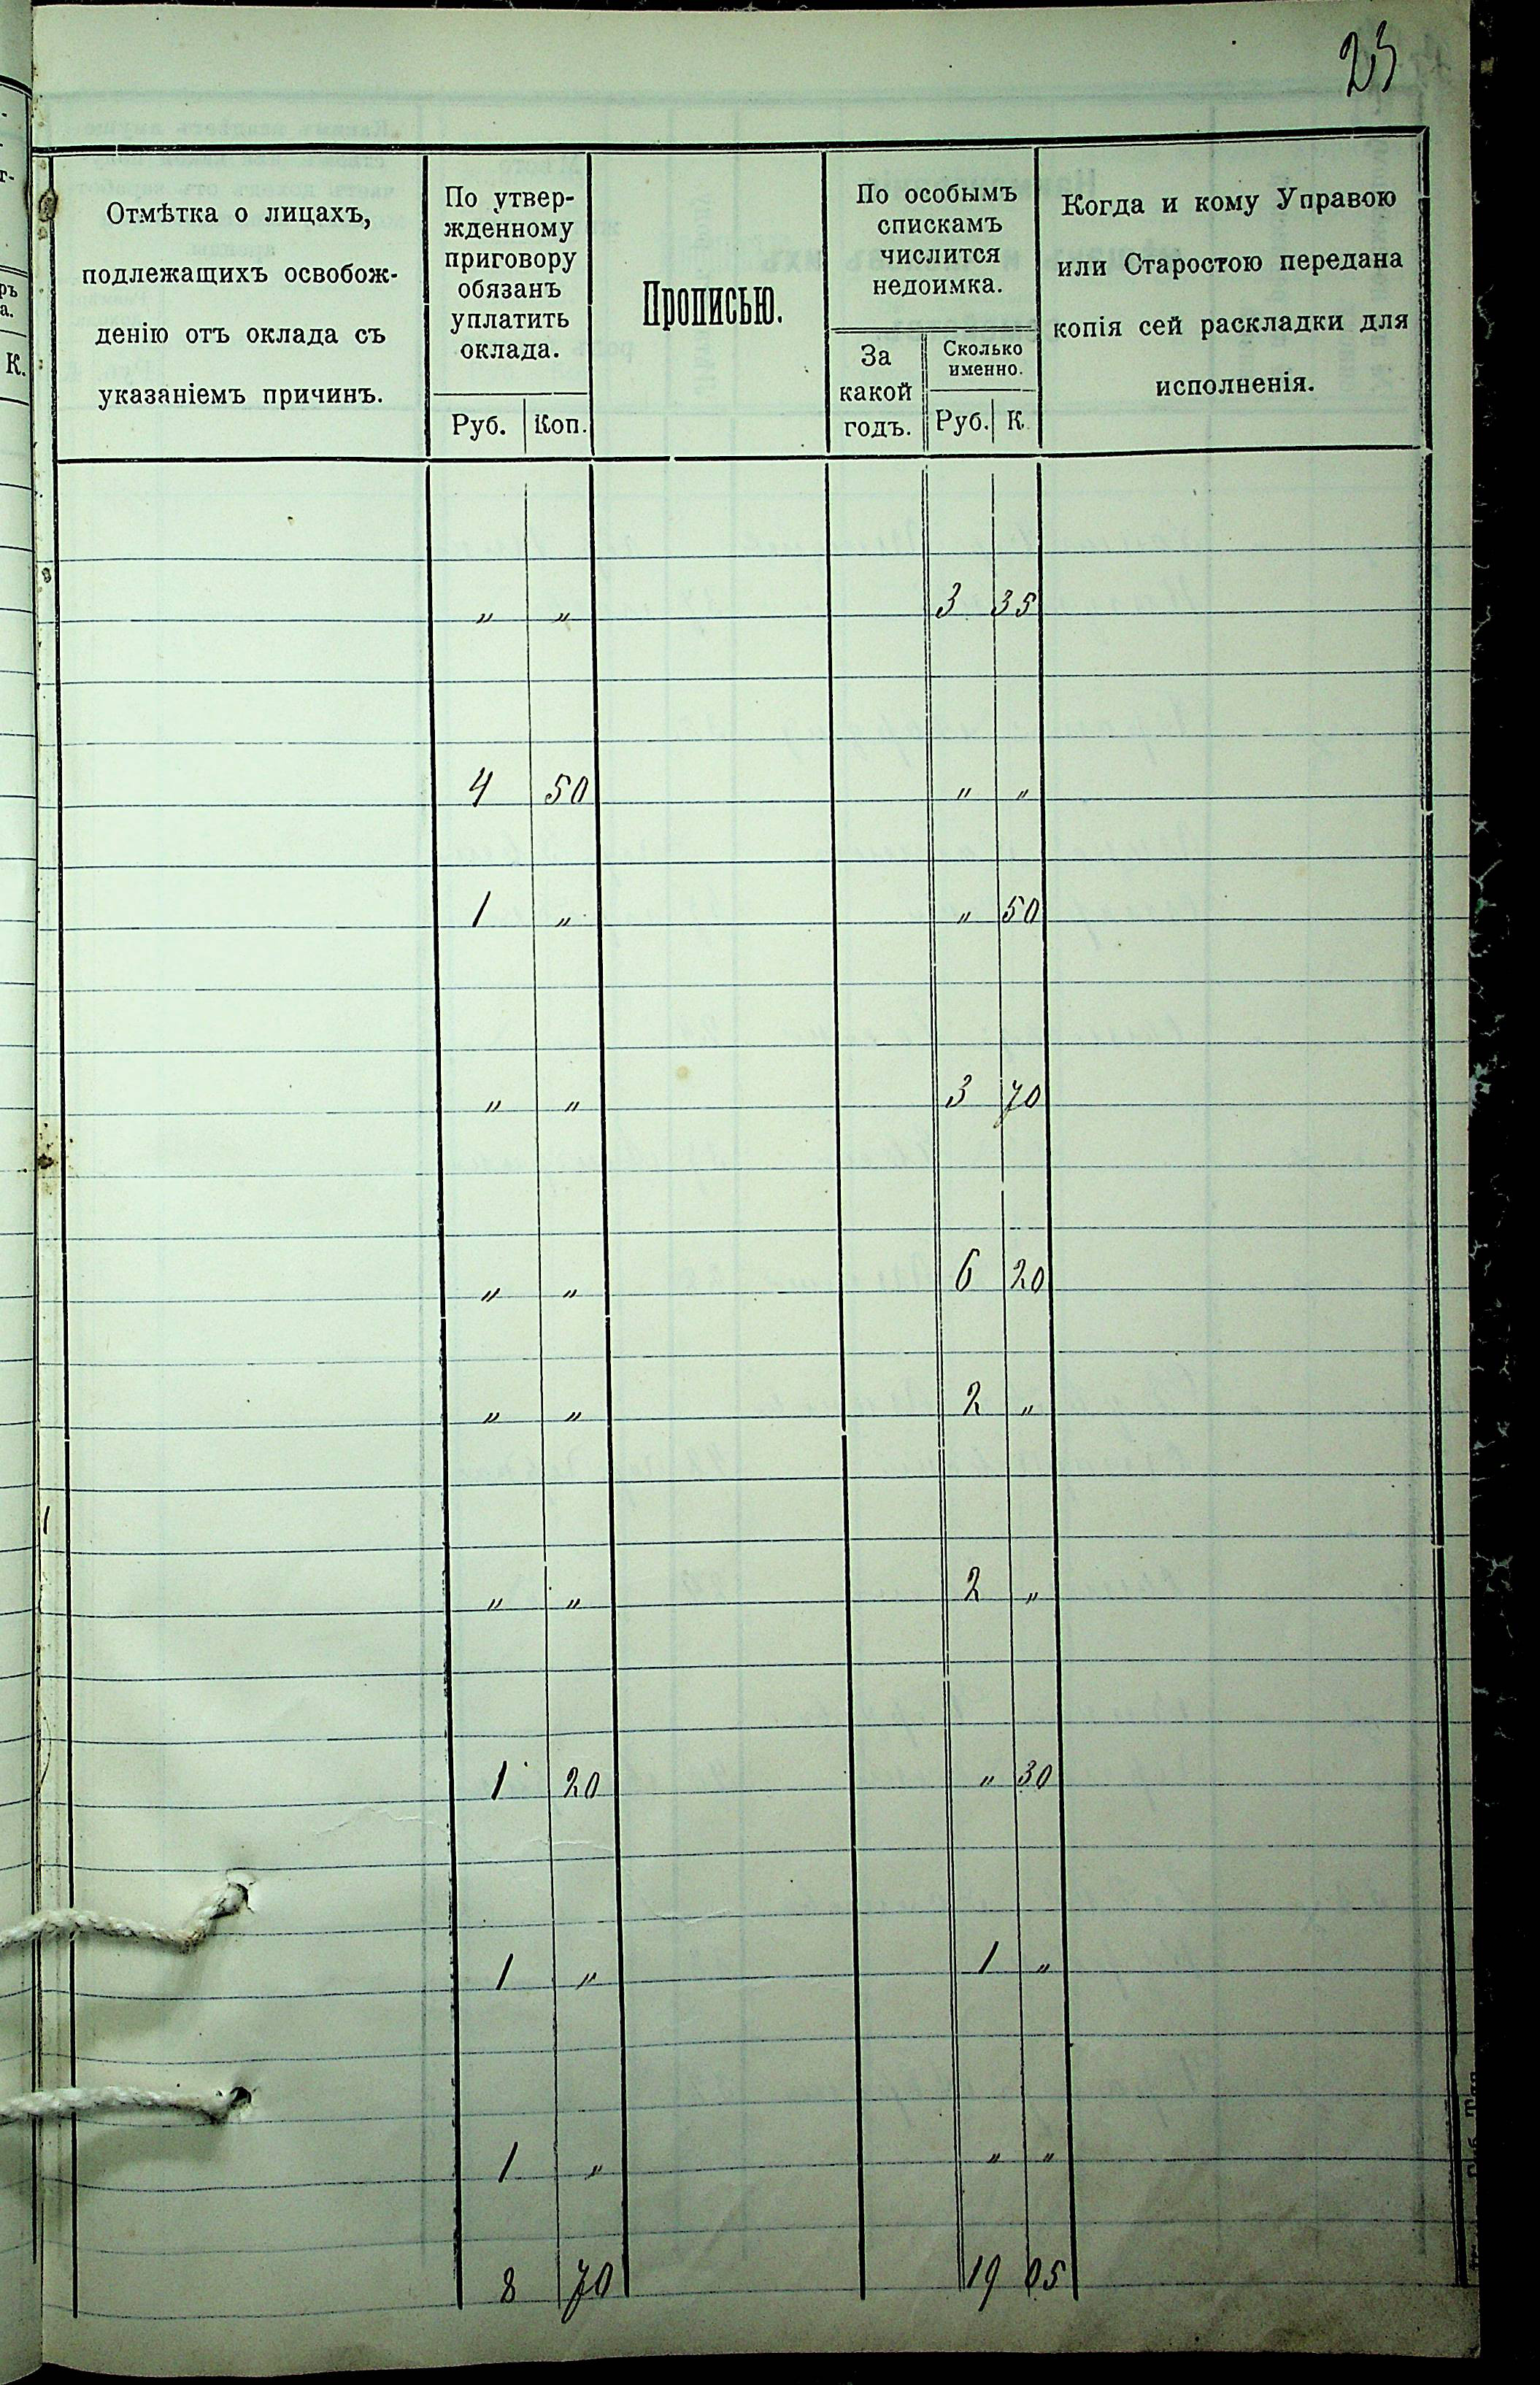 23
Отмѣтка о лицахъ,
подлежащихъ освобож-
денію отъ оклада съ
указаніемъ причинъ.
По утвер-
жденному
приговору
обязанъ
уплатить
оклада.
Руб. Коп.
Прописью.
По особымъ
спискамъ
числится
недоимка.
За
какой
годъ.
Сколько
именно.
Руб. К.
Когда и кому Управою
или Старостою передана
копія сей раскладки для
исполненія.
" " 3 35
4 50 " "
1 " " 50
" " 3 70
" " 6 20
" " 2 "
" " 2 "
1 20 " 30
1 " 1 "
1 " " "
8 70 19 05